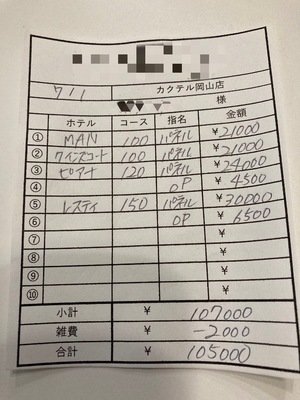 7/1
カクテル岡山店
様
ホテル コース 指名 金額
① MAN 100 パネル ¥21000
② ウインズコート 100 パネル ¥21000
③ ピアナ 120 パネル ¥24000
④ OP ¥4500
⑤ レスティ 150 パネル ¥30000
⑥ OP ¥6500
⑦ ¥
⑧ ¥
⑨ ¥
⑩ ¥
小計 ¥ 107000
雑費 ¥ -2000
合計 ¥ 105000